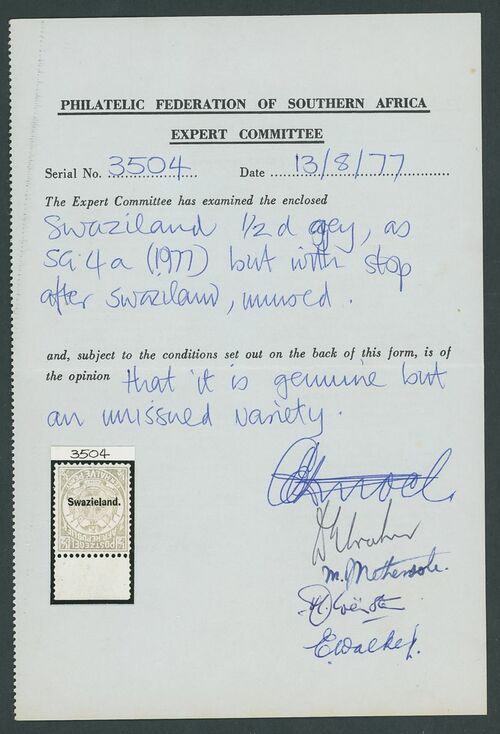 PHILATELIC FEDERATION OF SOUTHERN AFRICA
EXPERT COMMITTEE
Serial No. 3504 Date 13/8/77
The Expert Committee has examined the enclosed
Swaziland 1/2 d grey, as
SG 4a (1977) but with stop
after Swaziland, unused.
and, subject to the conditions set out on the back of this form, is of
the opinion that it is genuine but
an unissued variety.
3504
Swazieland.
E. Walker.